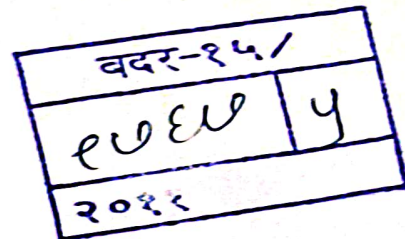 वदर-१५/
१७६७ ५
२०११